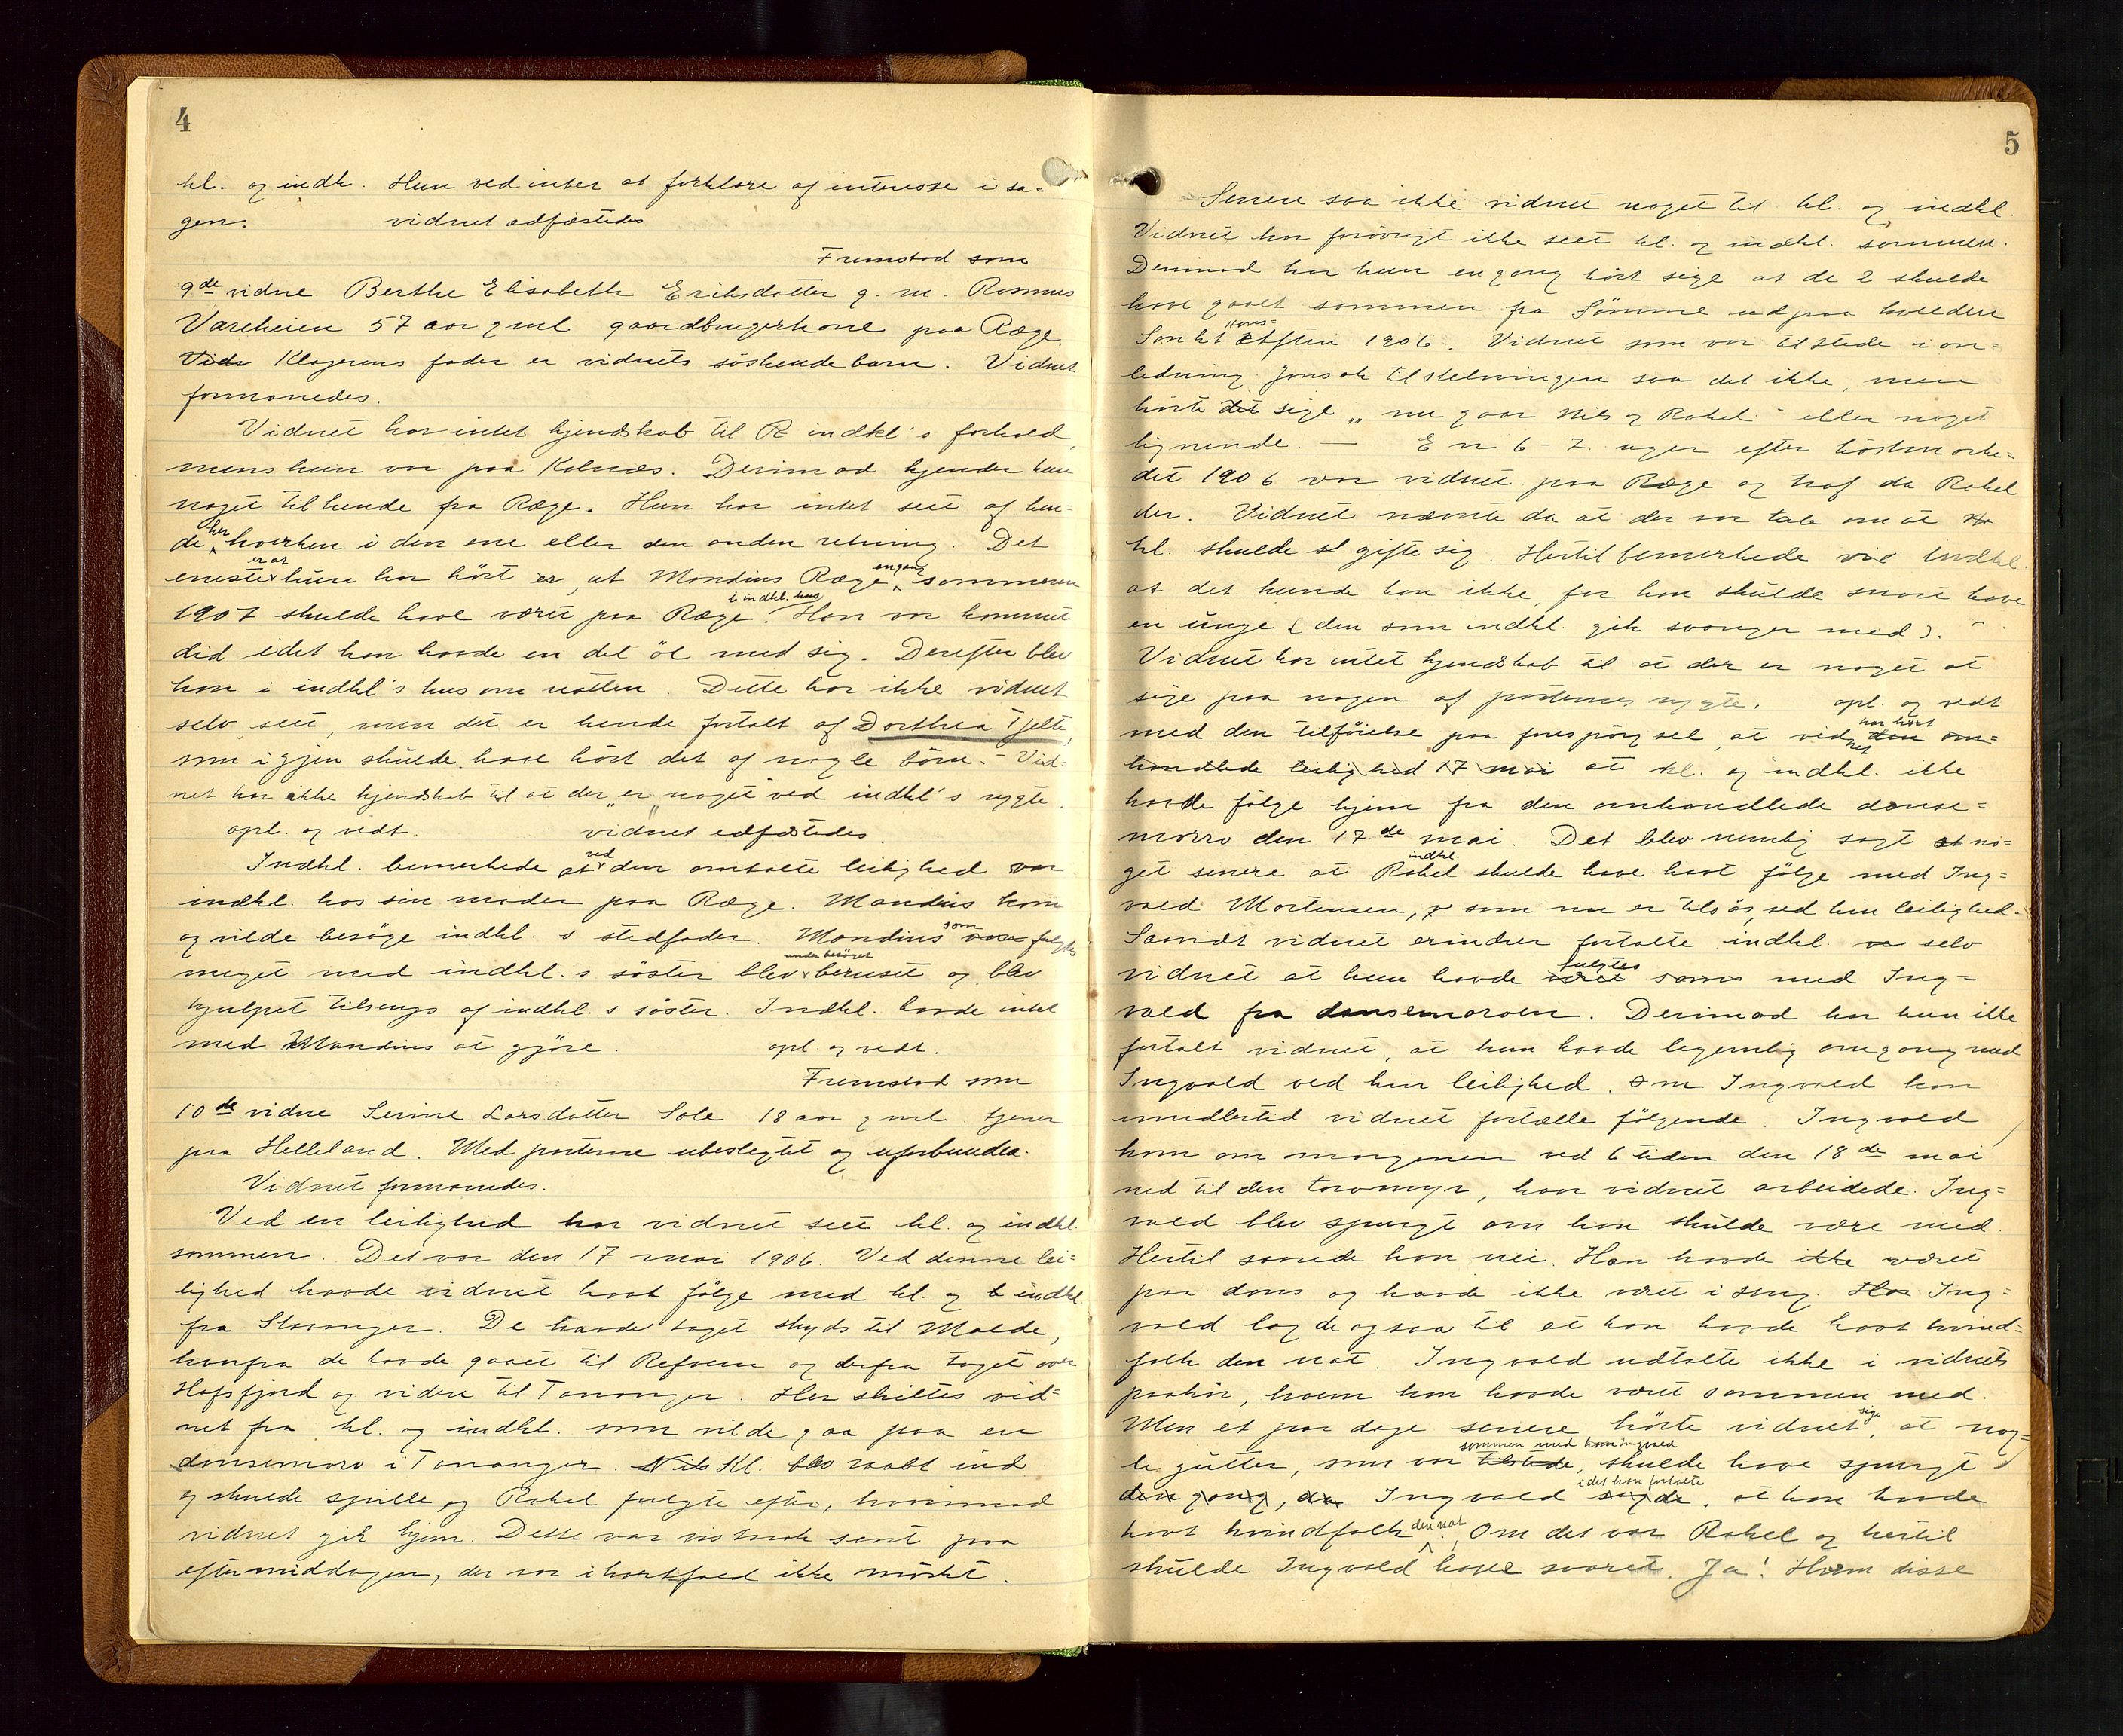 4
kl. og indk. Hun ved intet at forklare af interesse i sa-
gen. vidnet edfæstedes
Fremstod som
9de vidne Berthe Elisabeth Eriksdatter g. m. Rasmus
Vareheien 57 aar gml gaardbrugerkone paa Ræge.
Vidn Klagerens fader er vidnets söskendebarn. Vidnet
formanedes.
Vidnet har intet kjendskab til R indkl's forhold,
mens hun var paa Kolnæs. Derimod kjender hun
noget til hende fra Ræge. Hun har intet seet af hen-
de her hverken i den ene eller den anden retning. Det
eneste er at hun har hört er, at Mandius Ræge engang sommeren
1907 skulde have været paa Ræge i indkl. hus. Han var kommet
did idet han havde en del öl med sig. Derefter blev
han i indkl's hus om natten. Dette har ikke vidnet
selv seet, men det er hende fortalt af Dorthea Tjelte,
som igjen skulde have hört det af nogle börn. - Vid-
net har ikke kjendskab til at der "er" noget ved indkl's rygte.
opl. og vedt. vidnet edfæstedes.
Indkl. bemerkede at ved den omtalte leilighed var
indkl. hos sin moder paa Ræge. Mandius kom
og vilde besöge indkl.s stedfader. Mandius som var fulgte
meget med indkl.s söster blev under besöget beruset og blev
hjulpet tilsengs af indkl.s söster. Indkl. havde intet
med Mandius at gjöre. opl. og vedt.
Fremstod som
10de vidne Serine Larsdatter Sole 18 aar gml. tjener
paa Helleland. Med parterne ubeslegtet og uforbunden.
Vidnet formanedes.
Ved en leilighed har vidnet seet kl. og indkl.
sammen. Det var den 17 mai 1906. Ved denne lei-
lighed havde vidnet havt fölge med kl. og indkl.
fra Stavanger. De havde taget skyds til Malde,
hvorfra de havde gaaet til Refsnes og derfra taget over
Hafsfjord og videre til Tananger. Her skiltes vid-
net fra kl. og indkl. som vilde gaa paa en
dansemoro i Tananger. Nils Kl. blev raabt ind
og skulde spille og Rakel fulgte efter, hvorimod
vidnet gik hjem. Dette var vistnok sent paa
eftermiddagen, der var i hvertfald ikke mörkt.
5
Senere saa ikke vidnet noget til kl. og indkl.
Vidnet har forövrigt ikke seet kl. og indkl. sammen.
Derimod har hun engang hört sige at de 2 skulde
have gaaet sammen fra Sömme udpaa kvelden
Sankt Hans- Aften 1906. Vidnet som var tilstede i an-
ledning Jonsok tilstelningen saa det ikke, men
hörte det sige "nu gaar Nils og Rakel" eller noget
lignende. — En 6-7 uger efter höstmarke-
det 1906 var vidnet paa Ræge og traf da Rakel
der. Vidnet nævnte da at der var tale om at
kl. skulde gifte sig. Hertil bemerkede indkl.
at det kunde han ikke, for han skulde snart have
en unge (den som indkl. gik svanger med).
Vidnet har intet kjendskab til at der er noget at
sige paa nogen af parternes rygte. opl. og vedt
med den tilföielse paa forespörgsel, at vidnet har hört den om-
handlede leilighed 17 mai at kl. og indkl. ikke
havde fölge hjem fra den omhandlede danse-
morro den 17de mai. Det blev nemlig sagt at no-
get senere at Rakel indkl. skulde have havt fölge med Ing-
vald Mortensen, som nu er tilsös, ved hin leilighed.
Saavidt vidnet erindrer fortalte indkl. selv
vidnet at hun havde været fulgtes sam med Ing-
vald fra dansemoroen. Derimod har hun ikke
fortalt vidnet, at hun havde legemlig omgang med
Ingvald ved hin leilighed. Om Ingvald kan
imidlertid vidnet fortælle fölgende. Ingvald
kom om morgenen ved 6 tiden den 18de mai
ned til den torvmyr, hvor vidnet arbeidede. Ing-
vald blev spurgt om han skulde være med.
Hertil svarede han nei. Han havde ikke været
paa dans og havde ikke været i seng. Han Ing-
vald lagde ogsaa til at han havde havt kvind-
folk den nat. Ingvald udtalte ikke i vidnets
paahör, hvem han havde været sammen med.
Men et par dage senere hörte vidnet sige, at nog-
le gutter, som var tilstede sammen med ham Ingvald, skulde have spurgt
den gang, da Ingvald sagde i det han fortalte, at han havde
havt kvindfolk den nat, Om det var Rakel og hertil
skulde Ingvald have svaret. Ja! Hvem disse